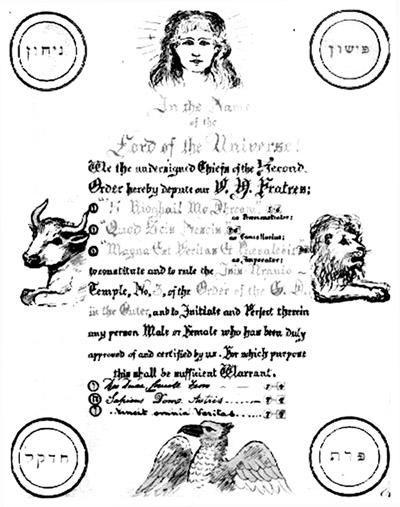 גיחון
פישון
In the Name
of the
Lord of the Universe!
We the undersigned Chiefs of the Second
Order hereby depute our V. H. Fratres:
"'S Rioghail Mo Dhream"
as Praemonstrator;
"Quod Scis Nescis"
as Cancellarius;
"Magna Est Veritas Et Praevalebit"
as Imperator;
to constitute and to rule the Isis Urania
Temple, No. 3, of the Order of the G. D.
in the Outer, and to Initiate and Perfect therein
any person Male or Female who has been duly
approved of and certified by us. For which purpose
this shall be sufficient Warrant.
Sapiens Dom. Astris
Vincit omnia Veritas
חדקל
פרת